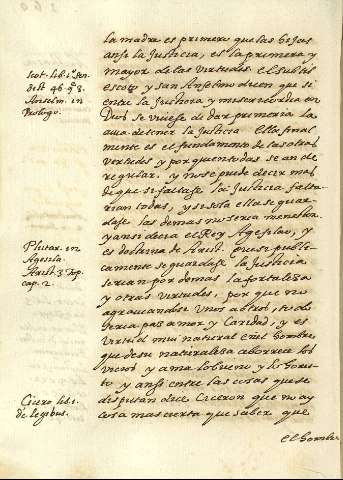 la madre es primero que las hijas
ansi la Justicia, es la primera y
mayor de las virtudes. el subtil
escoto y san Anselmo dicen que si
entre la Justicia y misericordia en
Dios se uviese de dar primeria la
avia de tener la Justicia. Ella final
mente es el fundamento de las otras
virtudes y por quien todas se an de
reglar, y no se puede decir mas
de que si faltase la Justicia falta-
rian todas, y si sola ella se guar-
dase las demas no seria menester.
y ansi decia el Rey Agesilao, y es
doctrina de Arist. que si publi-
camente se guardase la Justicia
serian por demas la fortaleza
y otras virtudes, por que no
agraviandose unos a otros, todo
seria paz amor y Caridad, y es
virtud mui natural en el hombre,
que de su naturaleza aborrece los
vicios y ama lo bueno y lo hones-
to y ansi entre las cosas que se
disputan dice Ciceron que no ay
cosa mas cierta que saber que
el hombre
Scot. lib. 1º Sen.
dist. 46. q. 8.
Anselm. in
Prologo.
Plutar. in
Agesila.
Arist. 3. Top.
cap. 2.
Cicero lib. 1.
de legibus.